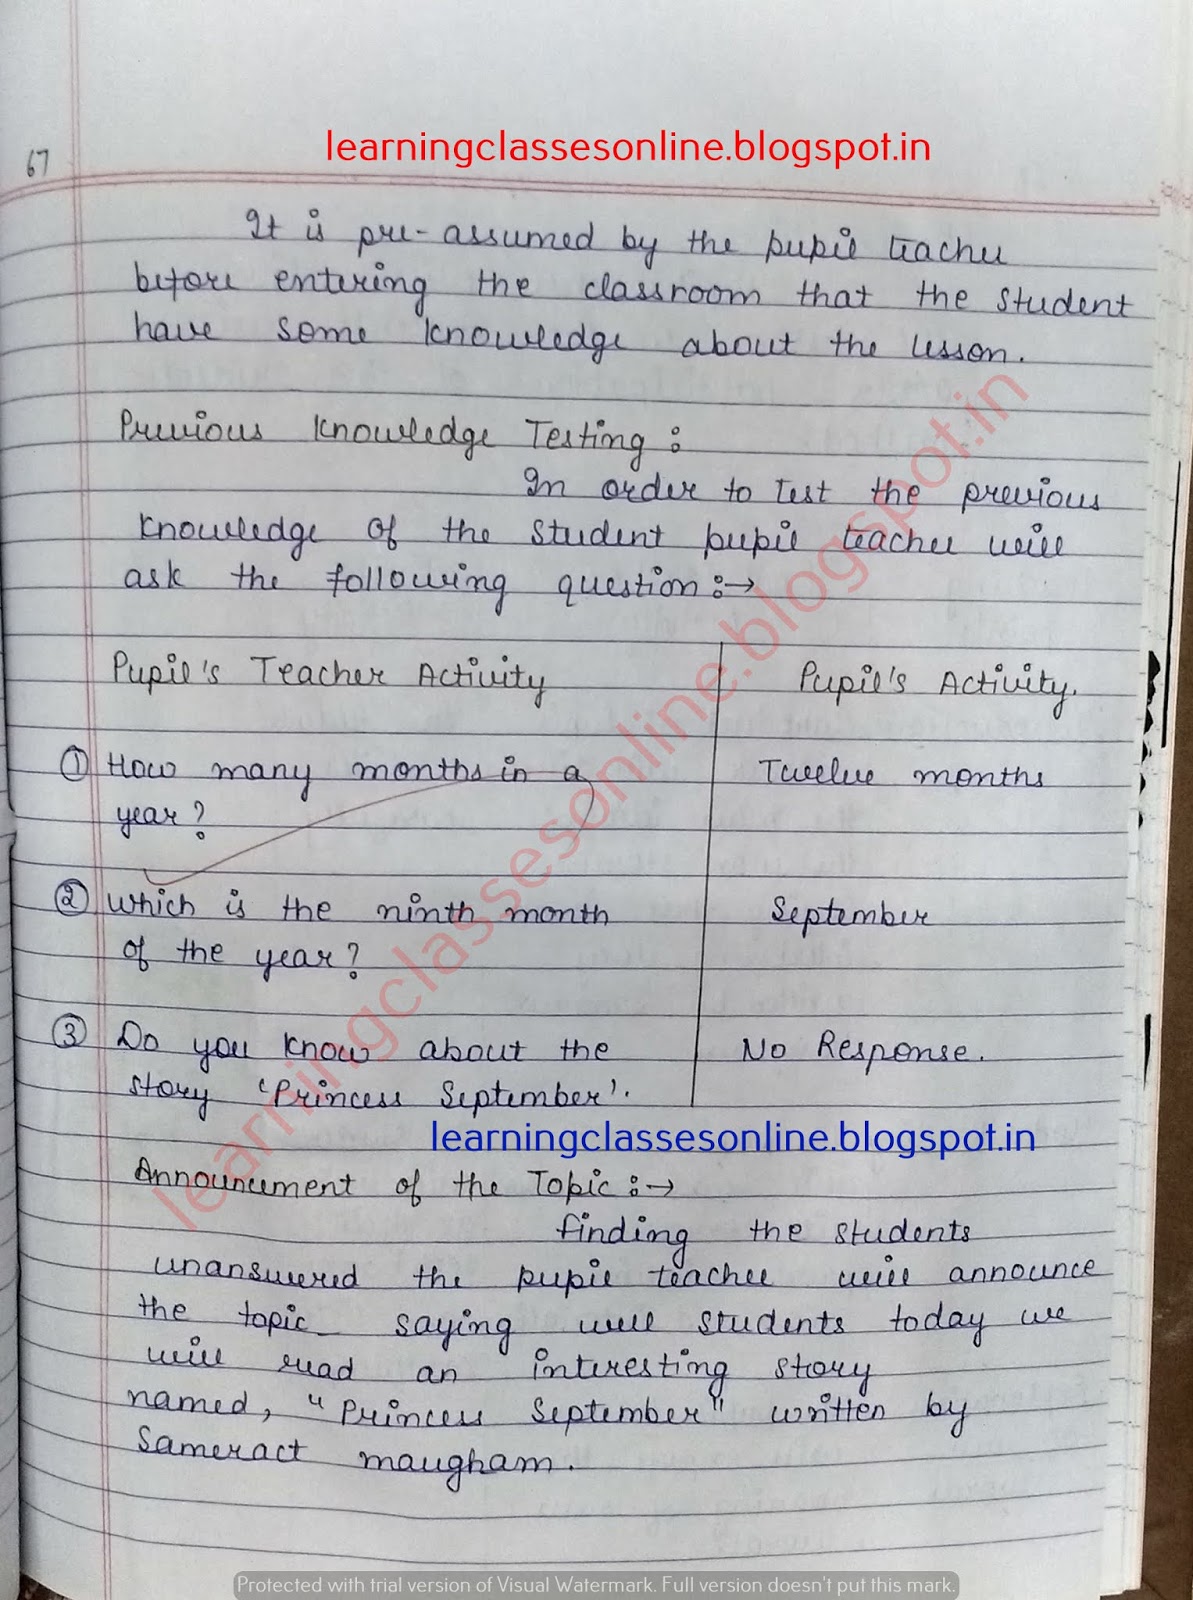 learningclassesonline.blogspot.in
67
It is pre-assumed by the pupil teacher
before entering the classroom that the student
have some knowledge about the lesson.
Previous Knowledge Testing :
In order to test the previous
knowledge of the student pupil teacher will
ask the following question :→
Pupil's Teacher Activity Pupil's Activity.
① How many months in a Twelve months
year?
② Which is the ninth month September
of the year?
③ Do you know about the No Response.
story 'Princess September'.
learningclassesonline.blogspot.in
learningclassesonline.blogspot.in
Announcement of the Topic :→
finding the students
unanswered the pupil teacher will announce
the topic saying well students today we
will read an interesting story
named, "Princess September" written by
Sameract maugham.
Protected with trial version of Visual Watermark. Full version doesn't put this mark.